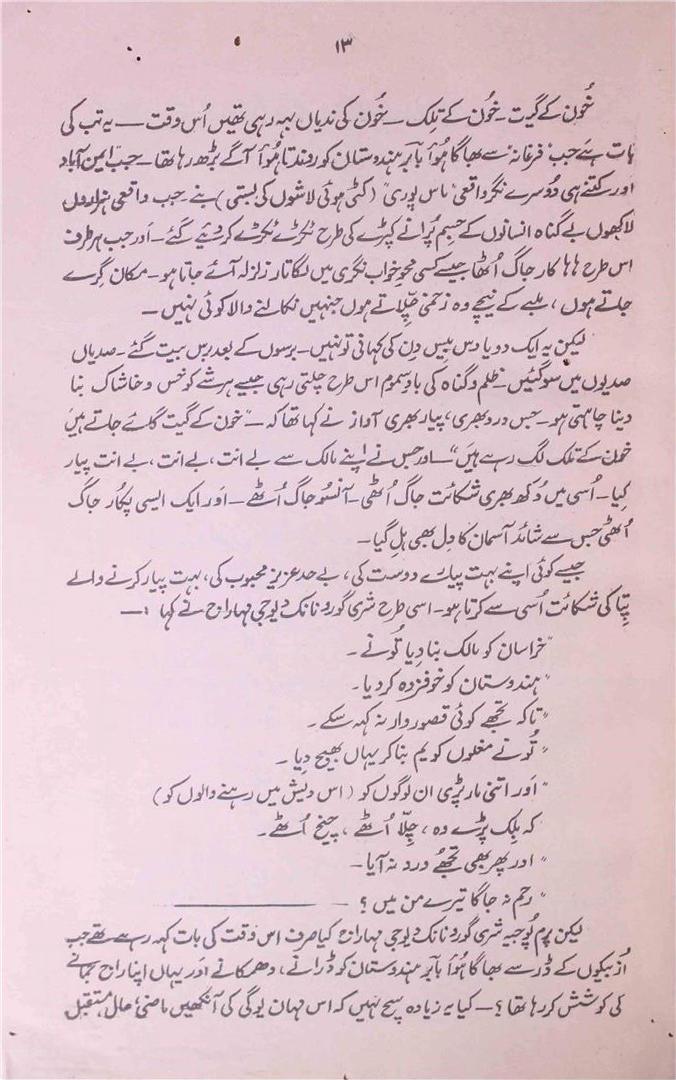 ۱۳
خُون کے گیت۔ خوُن کے تِلک ۔ خوُن کی ندیاں بہہ رہی تھیں اُس وقت — یہ تب کی
بات ہے جب فرغانہ سے بھاگا ہُوا بابر ہندوستان کو روندتا ہُوا آگے بڑھ رہا تھا۔ جب ایمن آباد
اور کتنے ہی دُوسرے نگر واقعی "ماس پوری" (کٹی ہوئی لاشوں کی بستی) بنے۔ جب واقعی ہزاروں
لاکھوں بے گناہ انسانوں کے جسم پُرانے کپڑے کی طرح ٹکڑے ٹکڑے کر دیئے گئے۔ اور جب ہر طرف
اس طرح ہاہاکار جاگ اُٹھا جیسے کسی محوِ خواب نگری میں لگاتار زلزلہ آئے جاتا ہو۔ مکان گِرے
جاتے ہوں، ملبے کے نیچے وہ زخمی چِلّاتے ہوں جنہیں نکالنے والا کوئی نہیں —
لیکن یہ ایک دو یا دس بیس دِن کی کہانی تو نہیں۔ برسوں کے بعد برس بیت گئے۔ صدیاں
صدیوں میں سو گئیں۔ ظلم و گناہ کی بادِ سموم اس طرح چلتی رہی جیسے ہر شے کو خس و خاشاک بنا
دینا چاہتی ہو۔ جس درد بھری، پیار بھری آواز نے کہا تھا کہ — "خون کے گیت گائے جاتے ہیں
خون کے تلک لگ رہے ہیں" — اور جس نے اپنے مالک سے بے انت، بے انت، بے انت پیار
کیا۔ اُسی میں دُکھ بھری شکائت جاگ اُٹھی۔ آنسو جاگ اُٹھے۔ اور ایک ایسی پکار جاگ
اُٹھی جس سے شائد آسمان کا دِل بھی ہِل گیا۔
جیسے کوئی اپنے بہت پیارے دوست کی، بے حد عزیز محبوب کی، بہت پیار کرنے والے
پِتا کی شکائت اُسی سے کرتا ہو۔ اسی طرح شری گورو نانک دیو جی مہاراج نے کہا :—
"خراسان کو مالک بنا دِیا تُو نے۔
"ہندوستان کو خوفزدہ کر دیا۔
"تاکہ تجھے کوئی قصوروار نہ کہہ سکے۔
"تُو نے مغلوں کو یم بنا کر یہاں بھیج دِیا۔
"اور اتنی مار پڑی ان لوگوں کو (اس دیش میں رہنے والوں کو)
کہ بِلک پڑے وہ، چِلّا اُٹھے، چیخ اُٹھے۔
"اور پھر بھی تجھُے درد نہ آیا۔
"رحم نہ جاگا تیرے من میں؟ —
لیکن پرم پُوجیہ شری گورو نانک دیو جی مہاراج کیا صرف اس وقت کی بات کہہ رہے تھے جب
اُزبیکوں کے ڈر سے بھاگا ہُوا بابر ہندوستان کو ڈرانے، دھمکانے اور یہاں اپنا راج جمانے
کی کوشش کر رہا تھا؟ — کیا یہ زیادہ سچ نہیں کہ اس مہان یوگی کی آنکھیں ماضی، حال، مستقبل